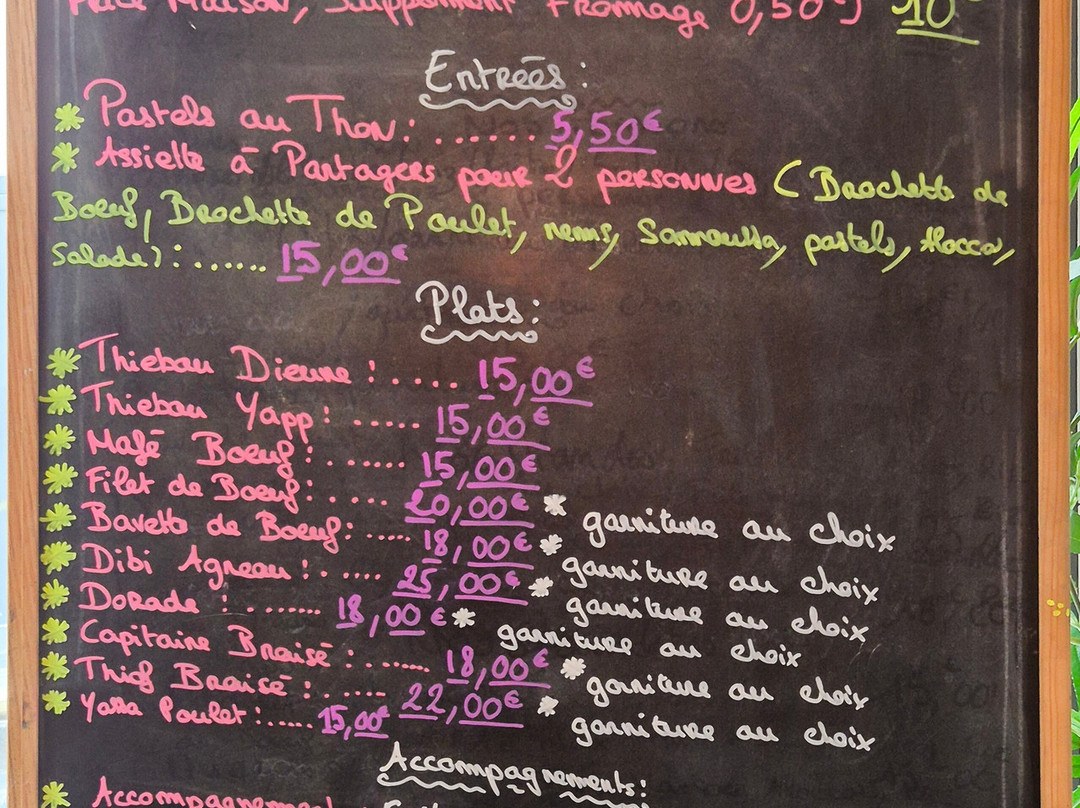 Maison, Supplément Fromage 0,50) 10
Entrées :
Pastels au Thon : ...... 5,50€
Assiette à Partagers pour 2 personnes ( Brochette de
Boeuf, Brochette de Poulet, nems, Samoussa, pastels, Alocco,
Salade) : ...... 15,00€
Plats :
Thiebou Dieune : ..... 15,00€
Thiebou Yapp : ..... 15,00€
Mafé Boeuf : ...... 15,00€
Filet de Boeuf : ..... 20,00€ * garniture au choix
Bavette de Boeuf : ..... 18,00€ * garniture au choix
Dibi Agneau : ..... 25,00€ * garniture au choix
Dorade : ....... 18,00€ * garniture au choix
Capitaine Braisé : ...... 18,00€ * garniture au choix
Thiof Braisé : ..... 22,00€ * garniture au choix
Yassa Poulet : ..... 15,00€
Accompagnements :
Accompagnement